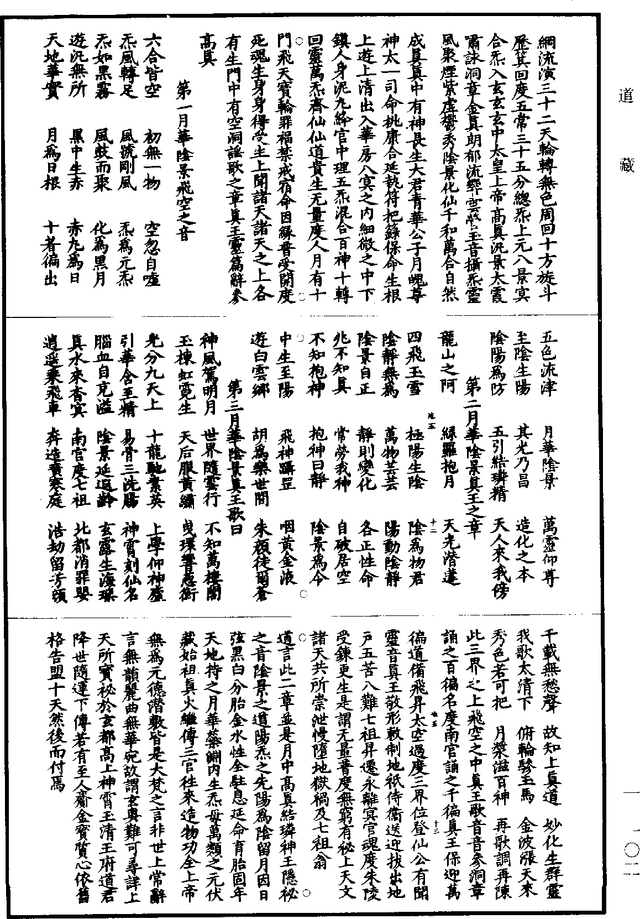 道藏
網流演三十二天輪轉無色周回十方旋斗
歷箕回度五常三十五分總炁上元八景冥
合炁入玄玄玄中太皇上帝高真汎景太霞
嘯詠洞章金真朗郁流響雲營玉音攝炁靈
風聚煙紫虛鬱秀陰景化仙千和萬合自然
成真真中有神長生大君青華公子月魄尊
神太一司命桃康合延執符把籙保命生根
上遊上清出入華房八冥之內細微之中下
鎮人身泥丸絳宮中理五炁混合百神十轉
回靈萬炁齊仙仙道貴生無量度人月有十
門飛天寶輪罪福禁戒宿命因緣普受開度
死魂生身身得受生上聞諸天諸天之上各
有生門中有空洞謠歌之章真王靈篇辭參
高真
第一月華陰景飛空之音
六合皆空 初無一物 空忽自噓
炁風轉足 風號剛風 炁為元炁
炁如黑霧 風鼓而聚 化為黑月
遊沉無所 黑中生赤 赤九為日
天地華實 月為日根 十耆徧出
五色流津 月華陰景 萬靈仰尊
至陰生陽 其光乃昌 造化之本
陰陽為防 五引結璘精 天人來我傍
第二月華陰景真王之章
龍山之阿 綠羅抱月 天光潛蓬
四飛玉雪 極陽生陰 陰為物君
陰靜無為 萬物芸芸 陽動陰靜
陰景自正 靜則變化 各正性命
兆不知真 常勞我神 自破居空
不知抱神 抱神曰靜 陰景為今
中生至陽 飛神躡罡 咽黃金液
遊白雲鄉 胡為樂世間 朱顏徒爾蒼
第三月華陰景真王歌曰
神風駕明月 世界隨雲行 不知萬樓閣
玉棟虹霓生 天后服黃繡 曳環響意衡
光分九天上 十龍馳素英 上學仰神虛
引華含至精 易骨三洗腸 神霄刻仙名
腦血自充溢 陰景延遐齡 玄露生漼璨
真水來杳冥 南宮度七祖 北都消罪嬰
逍遙乘飛車 奔造寶寒庭 浩劫留芳頌
千載無愁聲 故知上真道 妙化生群靈
我歌太清下 俯輪駿五馬 金波漲天來
秀色若可把 月榮滋百神 再歌調再陳
此三界之上飛空之中真王歌音音參洞章
誦之百徧名度南宮誦之千徧真王保迎萬
徧道備飛昇太空過度三界位登仙公有聞
靈音真王敬形敷制地祇侍衛送迎拔出地
戶五苦八難七祖昇遷永離冥官魂度朱陵
受鍊更生是謂無量普度無窮有秘上天文
諸天共所崇泄慢墮地獄禍及七祖翁
道言此二章並是月中高真結璘神王隱秘
之音陰景之道陽炁之先陽為陰留月因日
弦黑白分胎金水性全駐息延命育胎固年
天地持之月華藥淵內生炁母萬類之元伏
藏始祖真火繼傳三官牲來造物功全上帝
無為元德潛敷皆是大梵之言非世上常辭
言無韻麗曲無華宛故謂玄奧難可尋詳上
天所寶秘於玄都高上神霄玉清王府道君
降世隨運下傳若有至人齎金寶質心依舊
格告盟十天然後而付焉
一一〇二